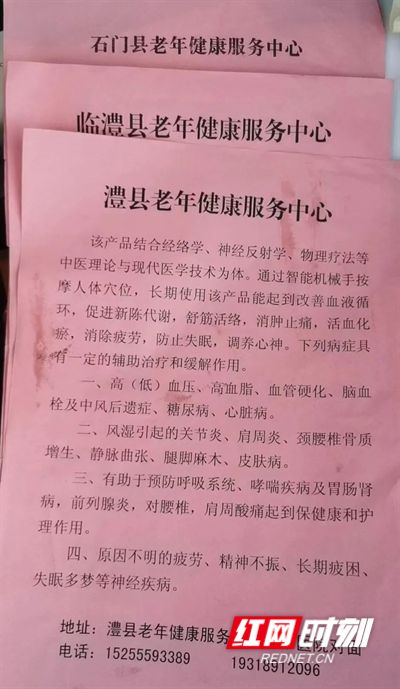 石门县老年健康服务中心
临澧县老年健康服务中心
澧县老年健康服务中心
该产品结合经络学、神经反射学、物理疗法等
中医理论与现代医学技术为体。通过智能机械手按
摩人体穴位，长期使用该产品能起到改善血液循
环，促进新陈代谢，舒筋活络，消肿止痛，活血化
瘀，消除疲劳，防止失眠，调养心神。下列病症具
有一定的辅助治疗和缓解作用。
一、高（低）血压、高血脂、血管硬化、脑血
栓及中风后遗症、糖尿病、心脏病。
二、风湿引起的关节炎、肩周炎、颈腰椎骨质
增生、静脉曲张、腿脚麻木、皮肤病。
三、有助于预防呼吸系统、哮喘疾病及胃肠肾
病，前列腺炎，对腰椎，肩周酸痛起到保健康和护
理作用。
四、原因不明的疲劳、精神不振、长期疲困、
失眠多梦等神经疾病。
地址：澧县老年健康服务 医院对面
电话：15255593389 19318912096
红网时刻
REDNET.CN